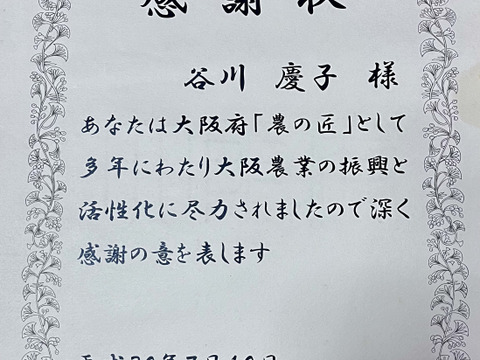 感謝状
谷川 慶子 様
あなたは大阪府「農の匠」として
多年にわたり大阪農業の振興と
活性化に尽力されましたので深く
感謝の意を表します